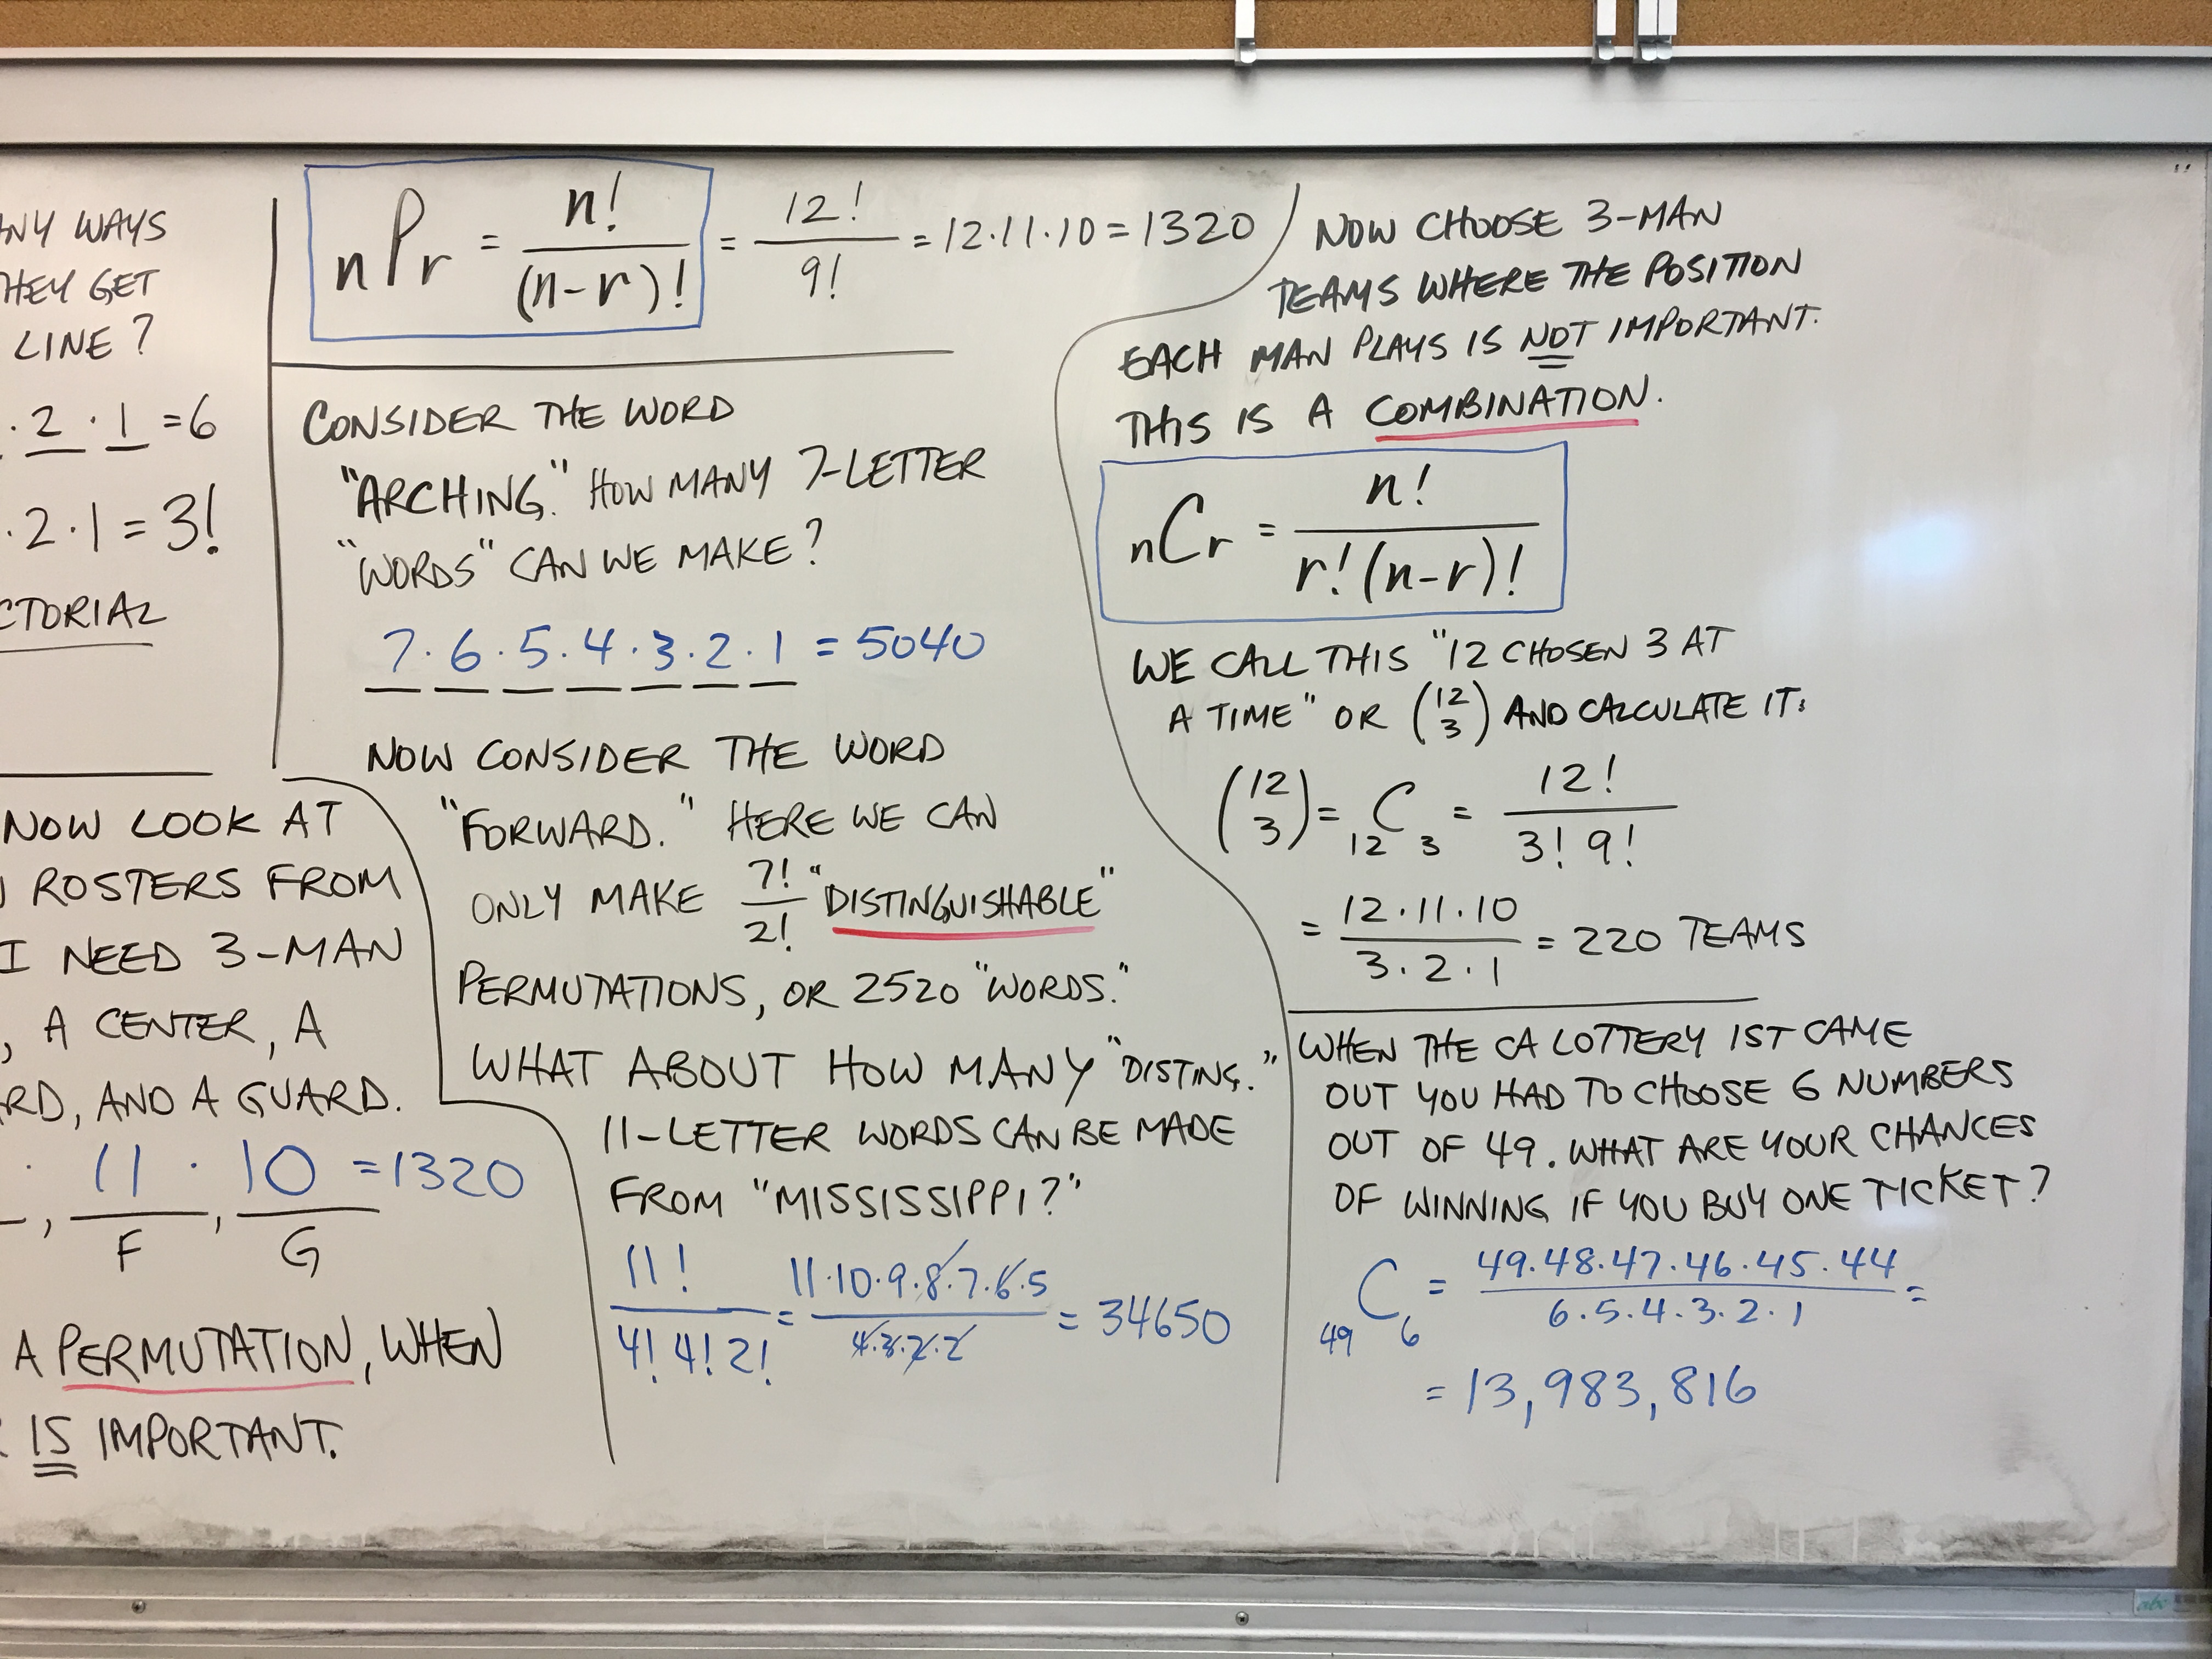 NY WAYS
HEY GET
LINE?
· 2 · 1 = 6
· 2 · 1 = 3!
CTORIAL
NOW LOOK AT
ROSTERS FROM
I NEED 3-MAN
, A CENTER, A
RD, AND A GUARD.
· 11 · 10 = 1320
, F , G
A PERMUTATION, WHEN
IS IMPORTANT.
nPr = n!/(n-r)! = 12!/9! = 12·11·10 = 1320
CONSIDER THE WORD
"ARCHING." HOW MANY 7-LETTER
"WORDS" CAN WE MAKE?
7·6·5·4·3·2·1 = 5040
NOW CONSIDER THE WORD
"FORWARD." HERE WE CAN
ONLY MAKE 7!/2! "DISTINGUISHABLE"
PERMUTATIONS, OR 2520 "WORDS."
WHAT ABOUT HOW MANY "DISTING."
11-LETTER WORDS CAN BE MADE
FROM "MISSISSIPPI?"
11!/4!4!2! = 11·10·9·8·7·6·5/4·3·2·2 = 34650
NOW CHOOSE 3-MAN
TEAMS WHERE THE POSITION
EACH MAN PLAYS IS NOT IMPORTANT.
THIS IS A COMBINATION.
nCr = n!/r!(n-r)!
WE CALL THIS "12 CHOSEN 3 AT
A TIME" OR (12 3) AND CALCULATE IT:
(12 3) = 12C3 = 12!/3!9!
= 12·11·10/3·2·1 = 220 TEAMS
WHEN THE CA LOTTERY 1ST CAME
OUT YOU HAD TO CHOOSE 6 NUMBERS
OUT OF 49. WHAT ARE YOUR CHANCES
OF WINNING IF YOU BUY ONE TICKET?
49C6 = 49·48·47·46·45·44/6·5·4·3·2·1 =
= 13,983,816
abc